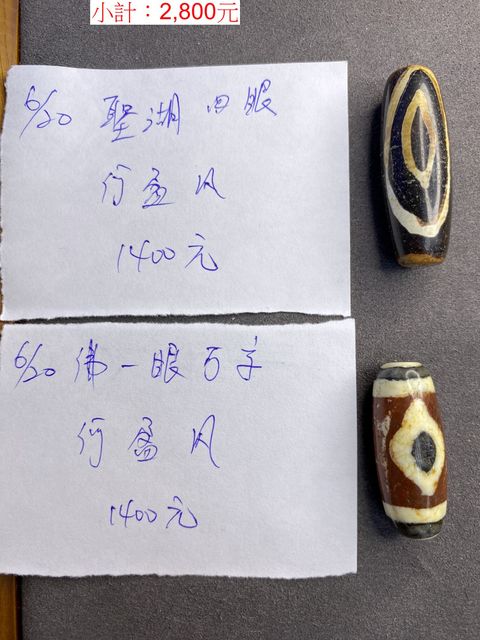 小計：2,800元
6/20 聖湖 四眼
何孟凤
1400元
6/20 佛一眼万字
何孟凤
1400元